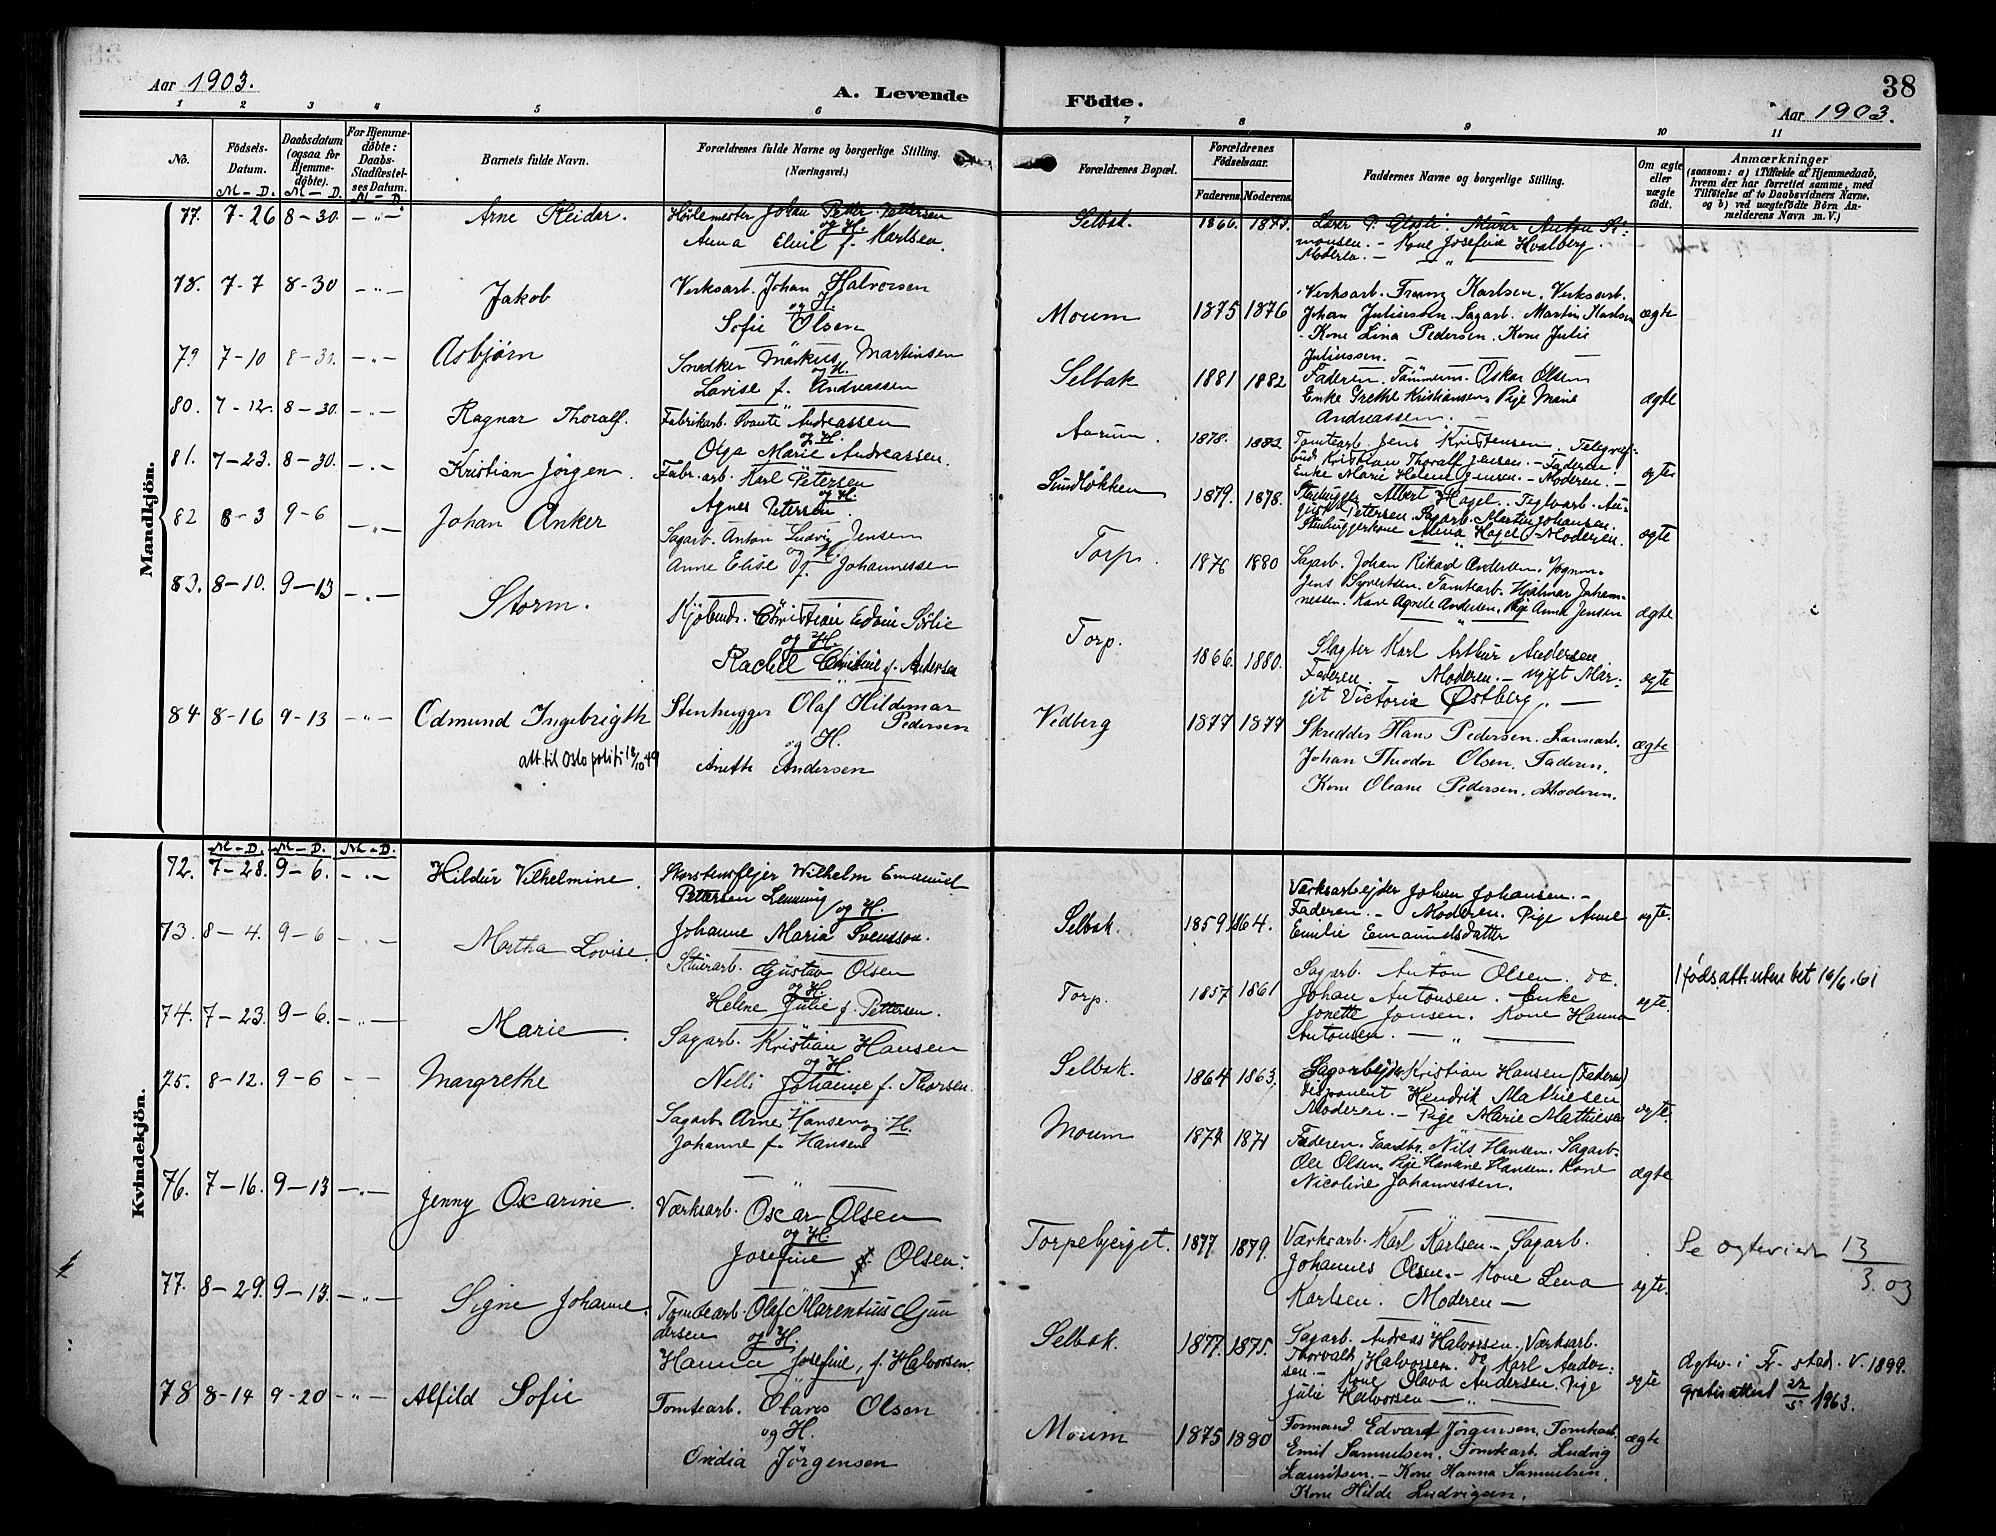 38
Aar 1903.
A. Levende Födte.
Aar 1903.
1 2 3 4 5 6 7 8 9 10 11
No.
Födsels-
Datum.
M - D.
Daabsdatum
(ogsaa for
Hjemme-
døbte).
M - D.
For Hjemme-
døbte:
Daabs-
Stadfæstel-
ses Datum.
M - D
Barnets fulde Navn.
Forældrenes fulde Navne og borgerlige Stilling.
(Næringsvei.)
Forældrenes Bopæl.
Forældrenes
Födselsaar.
Faderens. Moderens.
Faddernes Navne og borgerlige Stilling.
Om ægte
eller
uægte
født.
Anmærkninger
(saasom: a) i Tilfælde af Hjemmedaab,
hvem der har forrettet samme, med
Tilføielse af to Daabsvidners Navne,
og b) ved uægtefødte Børn An-
melderens Navn m. V.)
Mandkjön.
77. 7-26 8-30. -"- Arne Reidar. Johan Petter Pettersen
og H.
Anna Elvil f. Karlsen.
Selbak. 1866. Murer Anton Si-
monsen. - Kone Josefine Hvalberg.
Moderen. -
78. 7-7 8-30 -"- Jakob Verksarb. Johan Halvorsen
og H.
Sofie Olsen
Moum 1875 1876 Verksarb. Franz Karlsen. Verksarb.
Johan Julienssen. Sagarb. Martin Karlsen
Kone Lina Pedersen. Kone Julie
Julienssen. ægte
79 7-10 8-30. -"- Asbjørn Snedker Markus Martinsen
og H.
Lovise f. Andreassen
Selbak 1881 1882 Faderen. Tömmerm. Oskar Olsen
Enke Grethe Kristiansen. Pige Marie
Andreassen. ægte
80. 7-12. 8-30. -"- Ragnar Thoralf. Fabrikarb. Svante Andreassen
og H.
Olga Marie Andreassen.
Aarum. 1878. 1882 Tomtearb. Jens Kristensen. Telegraf-
bud Kristian Thoralf Jensen. - Faderen
Enke Marie Helene Jensen. - Moderen. - ægte
81. 7-23. 8-30. -"- Kristian Jörgen Fabr. arb. Karl Petersen
og H.
Agnes Petersen.
Sundløkken 1879. 1878. Stenhugger Albert Hagel. Teglvarb. Au-
gust Pettersen. Sagarb. Martin Johansen.
Stenhuggerkone Alma Hagel - Moderen. ægte
82 8-3 9-6 -"- Johan Anker Sagarb. Anton Ludvig Jensen
og H.
Anne Elise f. Johannessen
Torp. 1876 1880 Sagarb. Johan Rikard Andersen.
Jens Syvertsen. Tomtearb. Hjalmar Johan-
nessen. Kone Agnete Andersen. Pige Anna Jensen ægte
83. 8-10. 9-13 -"- Storm. Kjøbmd. Christian Edvin Sörlie
og H.
Rachel Christine f. Andersen
Torp. 1866. 1880. Slagter Karl Arthur Andersen
Faderen. Moderen. - ugift Mar-
git Victoria Østberg. - ægte
84 8-16 9-13 -"- Odmund Ingebrigth Stenhugger Olaf Hildemar
Pedersen
og H.
Anette Andersen
att. til Oslo politi 18/10 49
Vedberg 1877 1877 Skredder Hans Pedersen. Lensearb.
Johan Theodor Olsen. Faderen.
Kone Oleane Pedersen. Moderen. ægte
Kvindekjön.
M-D. M-D. M-D.
72. 7-28. 9-6. -"- Hildur Vilhelmine. Skorstensfejer Wilhelm Emanuel
Petersen Lenning og H.
Johanne Maria Svensson.
Selbak. 1859 1864. Værksarbejder Johan Johansen. -
Faderen. - Moderen. Pige Anne
Emilie Emanuelsdatter ægte.
73. 8-4. 9-6 -"- Martha Lovise. Stuerarb. Gustav Olsen
og H.
Helene Julie f. Pettersen.
Torp. 1857 1861 Sagarb. Anton Olsen. do.
Johan Antonsen. Enke
Jonette Jonsen. Kone Hanna
Antonsen. ægte. 1 føds.att. utne bet 16/6.61
74. 7-23. 9-6. -"- Marie. Sagarb. Kristian Hansen
og H.
Nelli Johanne f. Thorsen.
Selbak. 1864 1863. Sagarbejder Kristian Hansen (Faderen)
Disponent Hendrik Mathiesen
Moderen. - Pige Marie Mathiesen ægte.
75. 8-12. 9-6 - - Margrethe Sagarb. Arne Hansen og H.
Johanne f. Hansen
Moum 1874 1871 Faderen. Gaardbr. Nils Hansen. Sagarb.
Ole Olsen. Pige Hansine Hansen. Kone
Nicoline Johannessen. ægte
76. 7-16. 9-13 -"- Jenny Oscarine. Værksarb. Oscar Olsen
og H.
Josefine f. Olsen.
Torpebjerget. 1877 1879. Værksarb. Karl Karlsen - Sagarb.
Johannes Olsen. - Kone Lena
Karlsen. Moderen - ægte. Se ægteviede 13/3.03
77. 8-29. 9-13. -"- Signe Johanne. Tomtearb. Olaf Marentius Gun
dersen
og H.
Hanna Josefine, f. Halvorsen.
Selbak. 1877. 1875. Sagarb. Andreas Halvorsen. Værksarb.
Thorvald Halvorsen. do Karl Ander-
sen. - Kone Olava Andersen. Pige
Julie Halvorsen - ægte Ægtev. i Fr.stad. V. 1899.
gratis attest 22/5 1963.
78 8-14 9-20 -"- Alfild Sofie Tomtearb. Olaves Olsen
og H.
Ovidia Jörgensen
Moum 1875 1880 Formand Edvard Jørgensen. Tomtearb.
Emil Samuelsen. Tomtearb. Ludvig
Lauritsen. - Kone Hanna Samuelsen.
Kone Hilde Ludvigsen. ægte